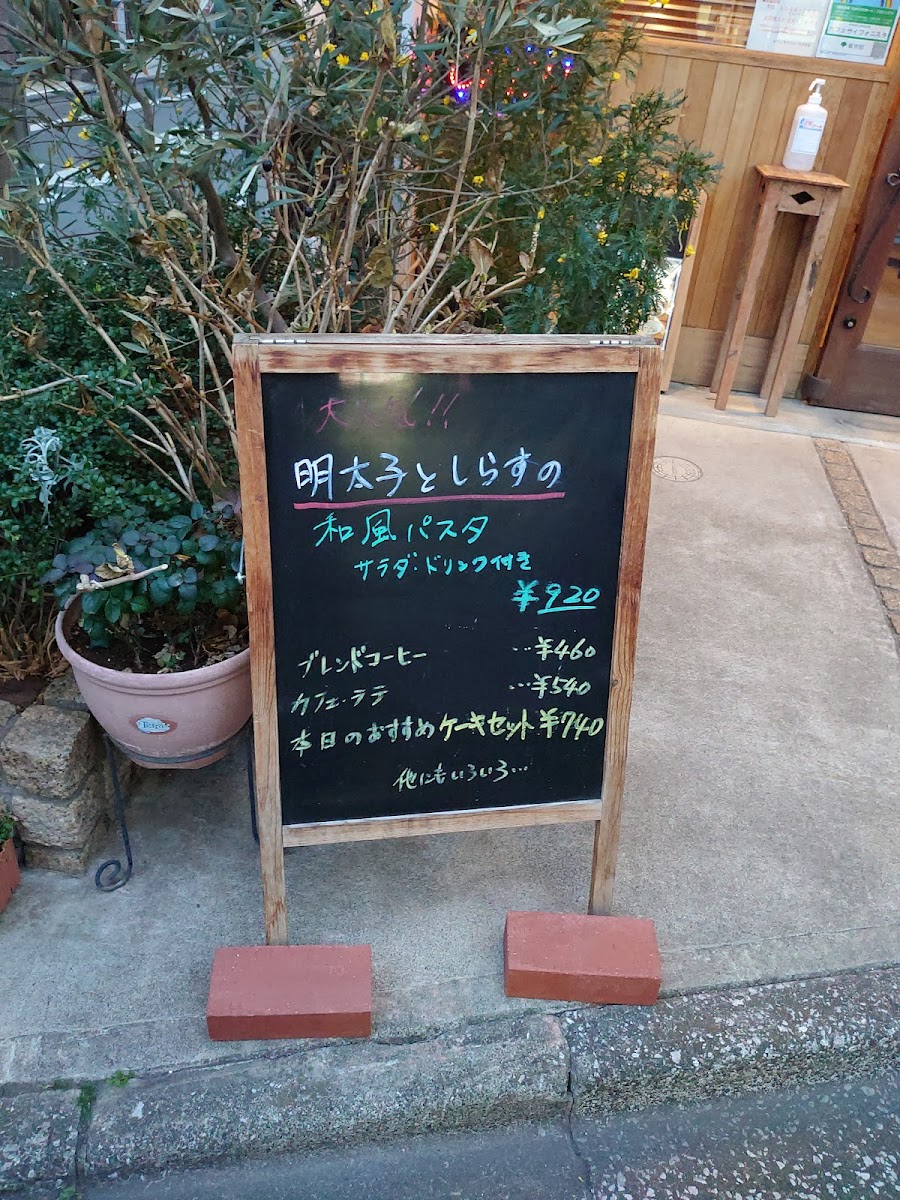 大人気!!
明太子としらすの
和風パスタ
サラダ・ドリンク付き
¥920
ブレンドコーヒー …¥460
カフェ・ラテ …¥540
本日のおすすめケーキセット ¥740
他にもいろいろ…
Terra